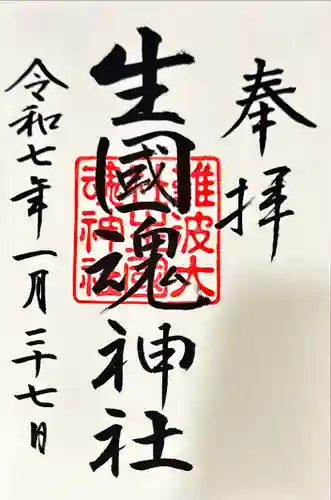 奉拝
生國魂神社
難波大
社生國
魂神社
令和七年一月三十七日